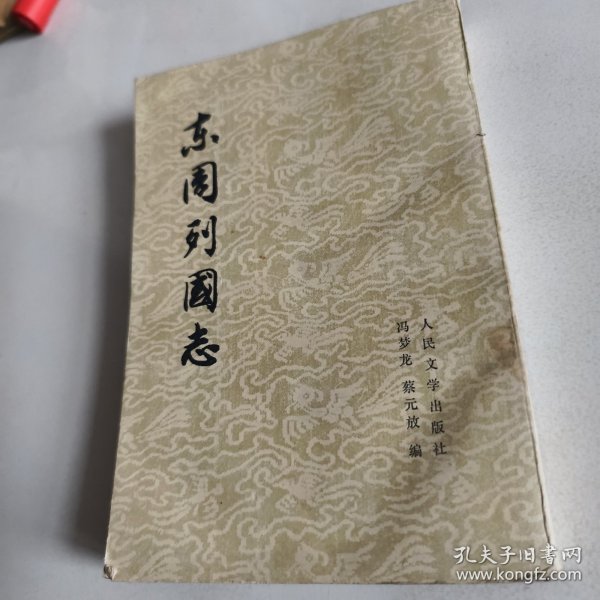 东周列國志
人民文学出版社
冯梦龙 蔡元放 编
孔夫子旧书网
www.kongfz.com